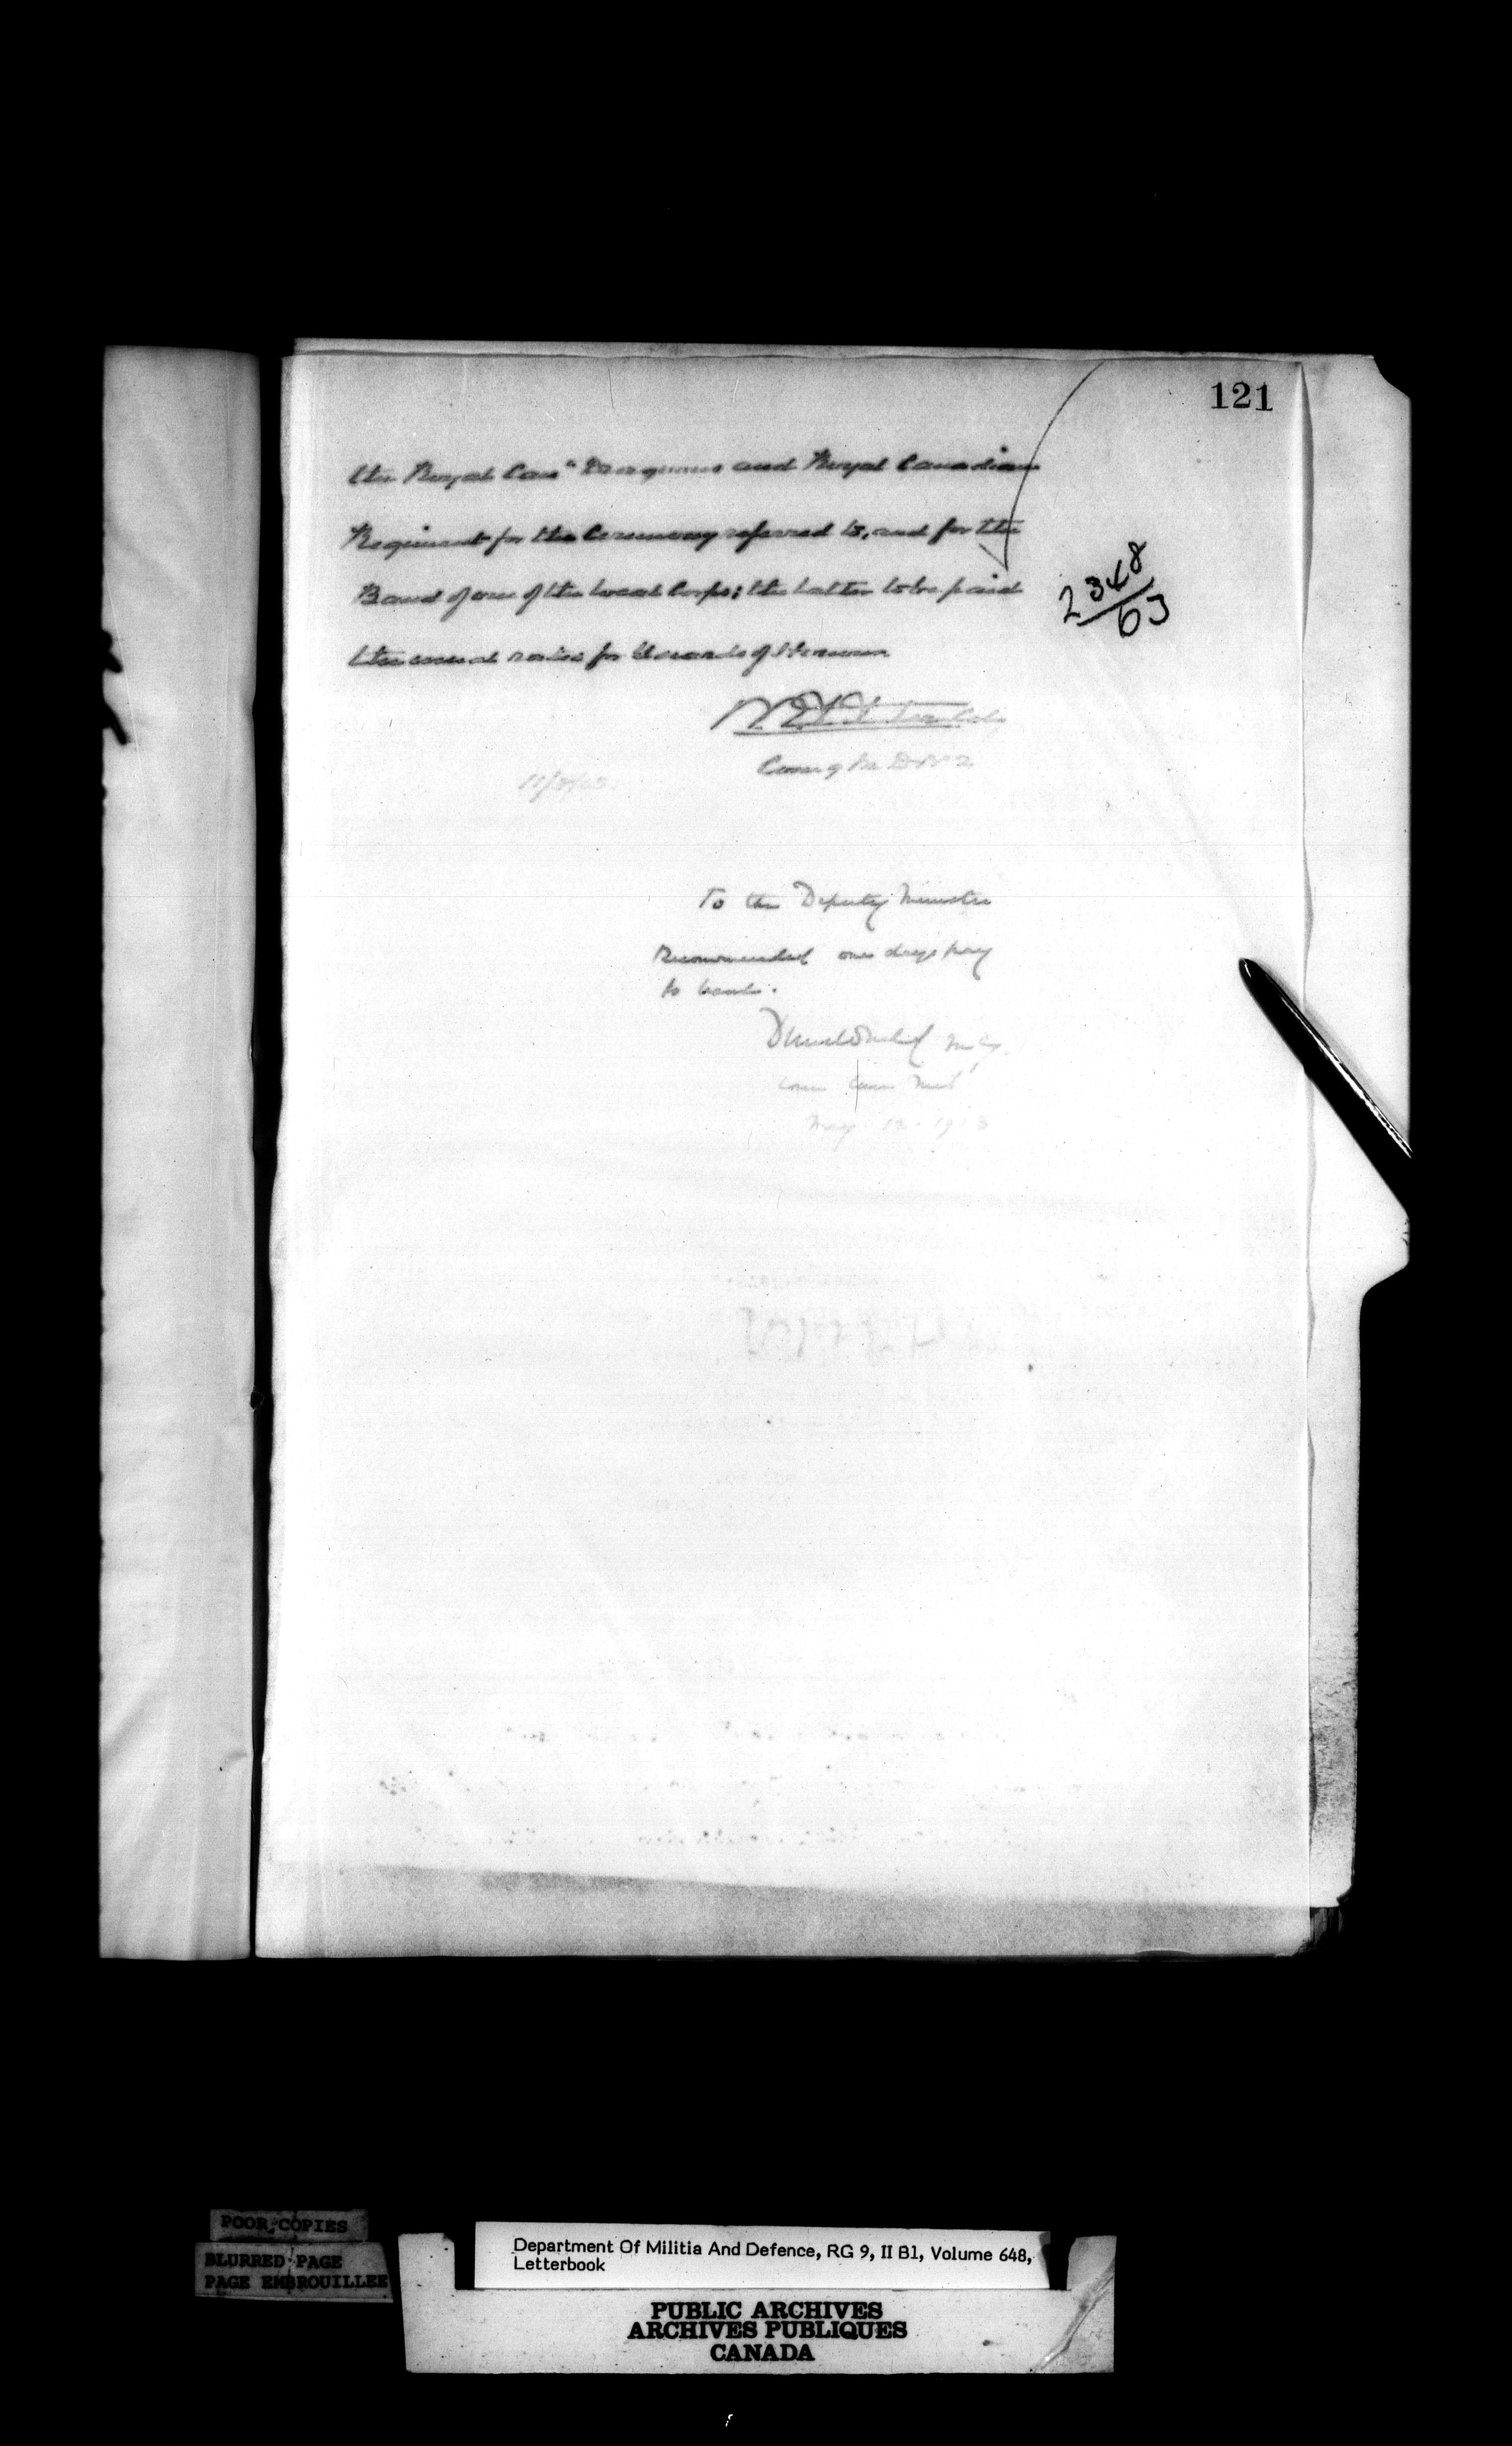 121
the Royal Can<sup>n</sup> Dragoons and Royal Canadian
Regiment for the Ceremony referred to, and for the
Band of one of the local Corps; the latter to be paid
the usual rates for Guards of Honour
2348
03
Comg M. D. No 2
11/5/03.
To the Deputy Minister
Recommended one days pay
to band.
Dundonald M. G.
Com Can Mil
May 12. 1903
POOR COPIES
BLURRED PAGE
PAGE EMBROUILLEE
Department Of Militia And Defence, RG 9, II B1, Volume 648,
Letterbook
PUBLIC ARCHIVES
ARCHIVES PUBLIQUES
CANADA